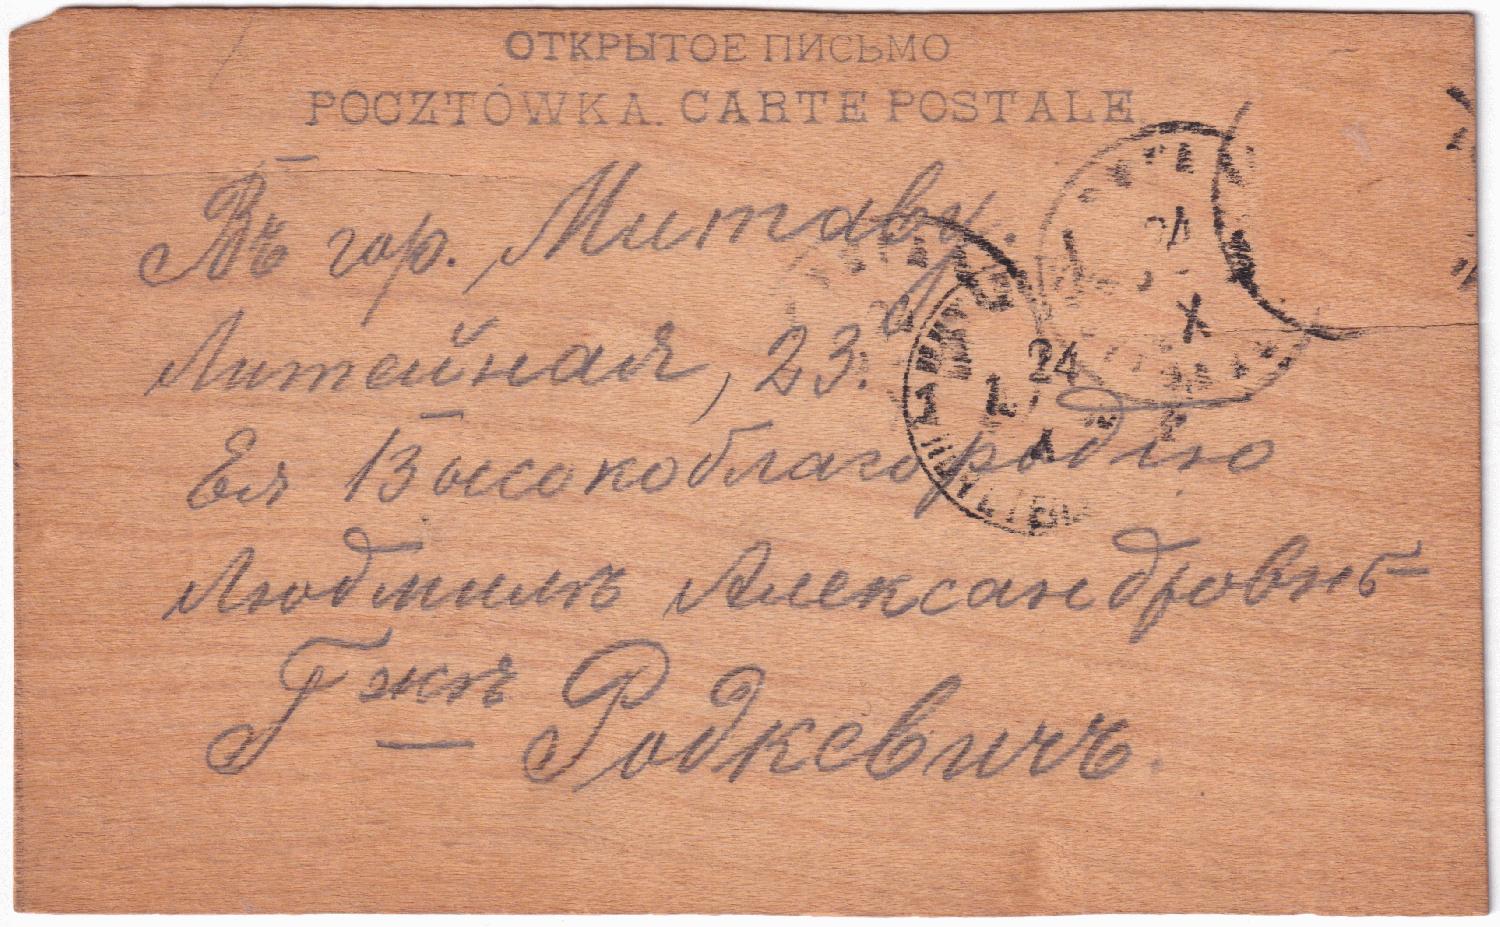 ОТКРЫТОЕ ПИСЬМО
POCZTÓWKA. CARTE POSTALE
Въ гор. Митаву.
Литейная, 23.
Ея Высокоблагородію
Людмилѣ Александровнѣ
Гжѣ Родкевичъ.
24
X
24
1